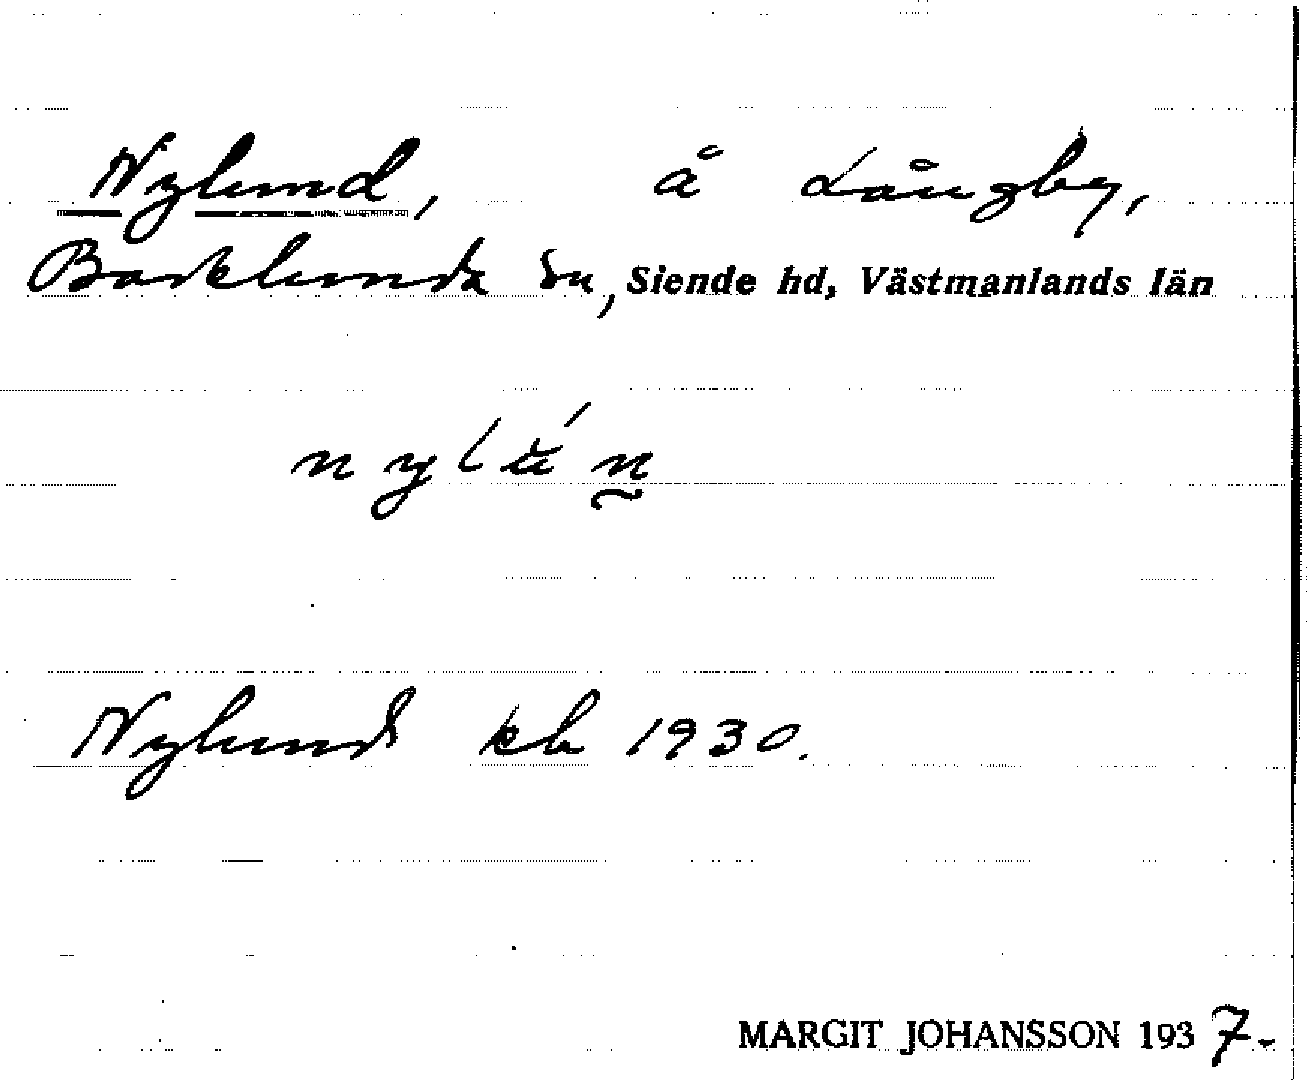 Nylund, å Långby,
Barklunda sn, Siende hd, Västmanlands län
nylún
Nylund kb 1930.
MARGIT JOHANSSON 1937-